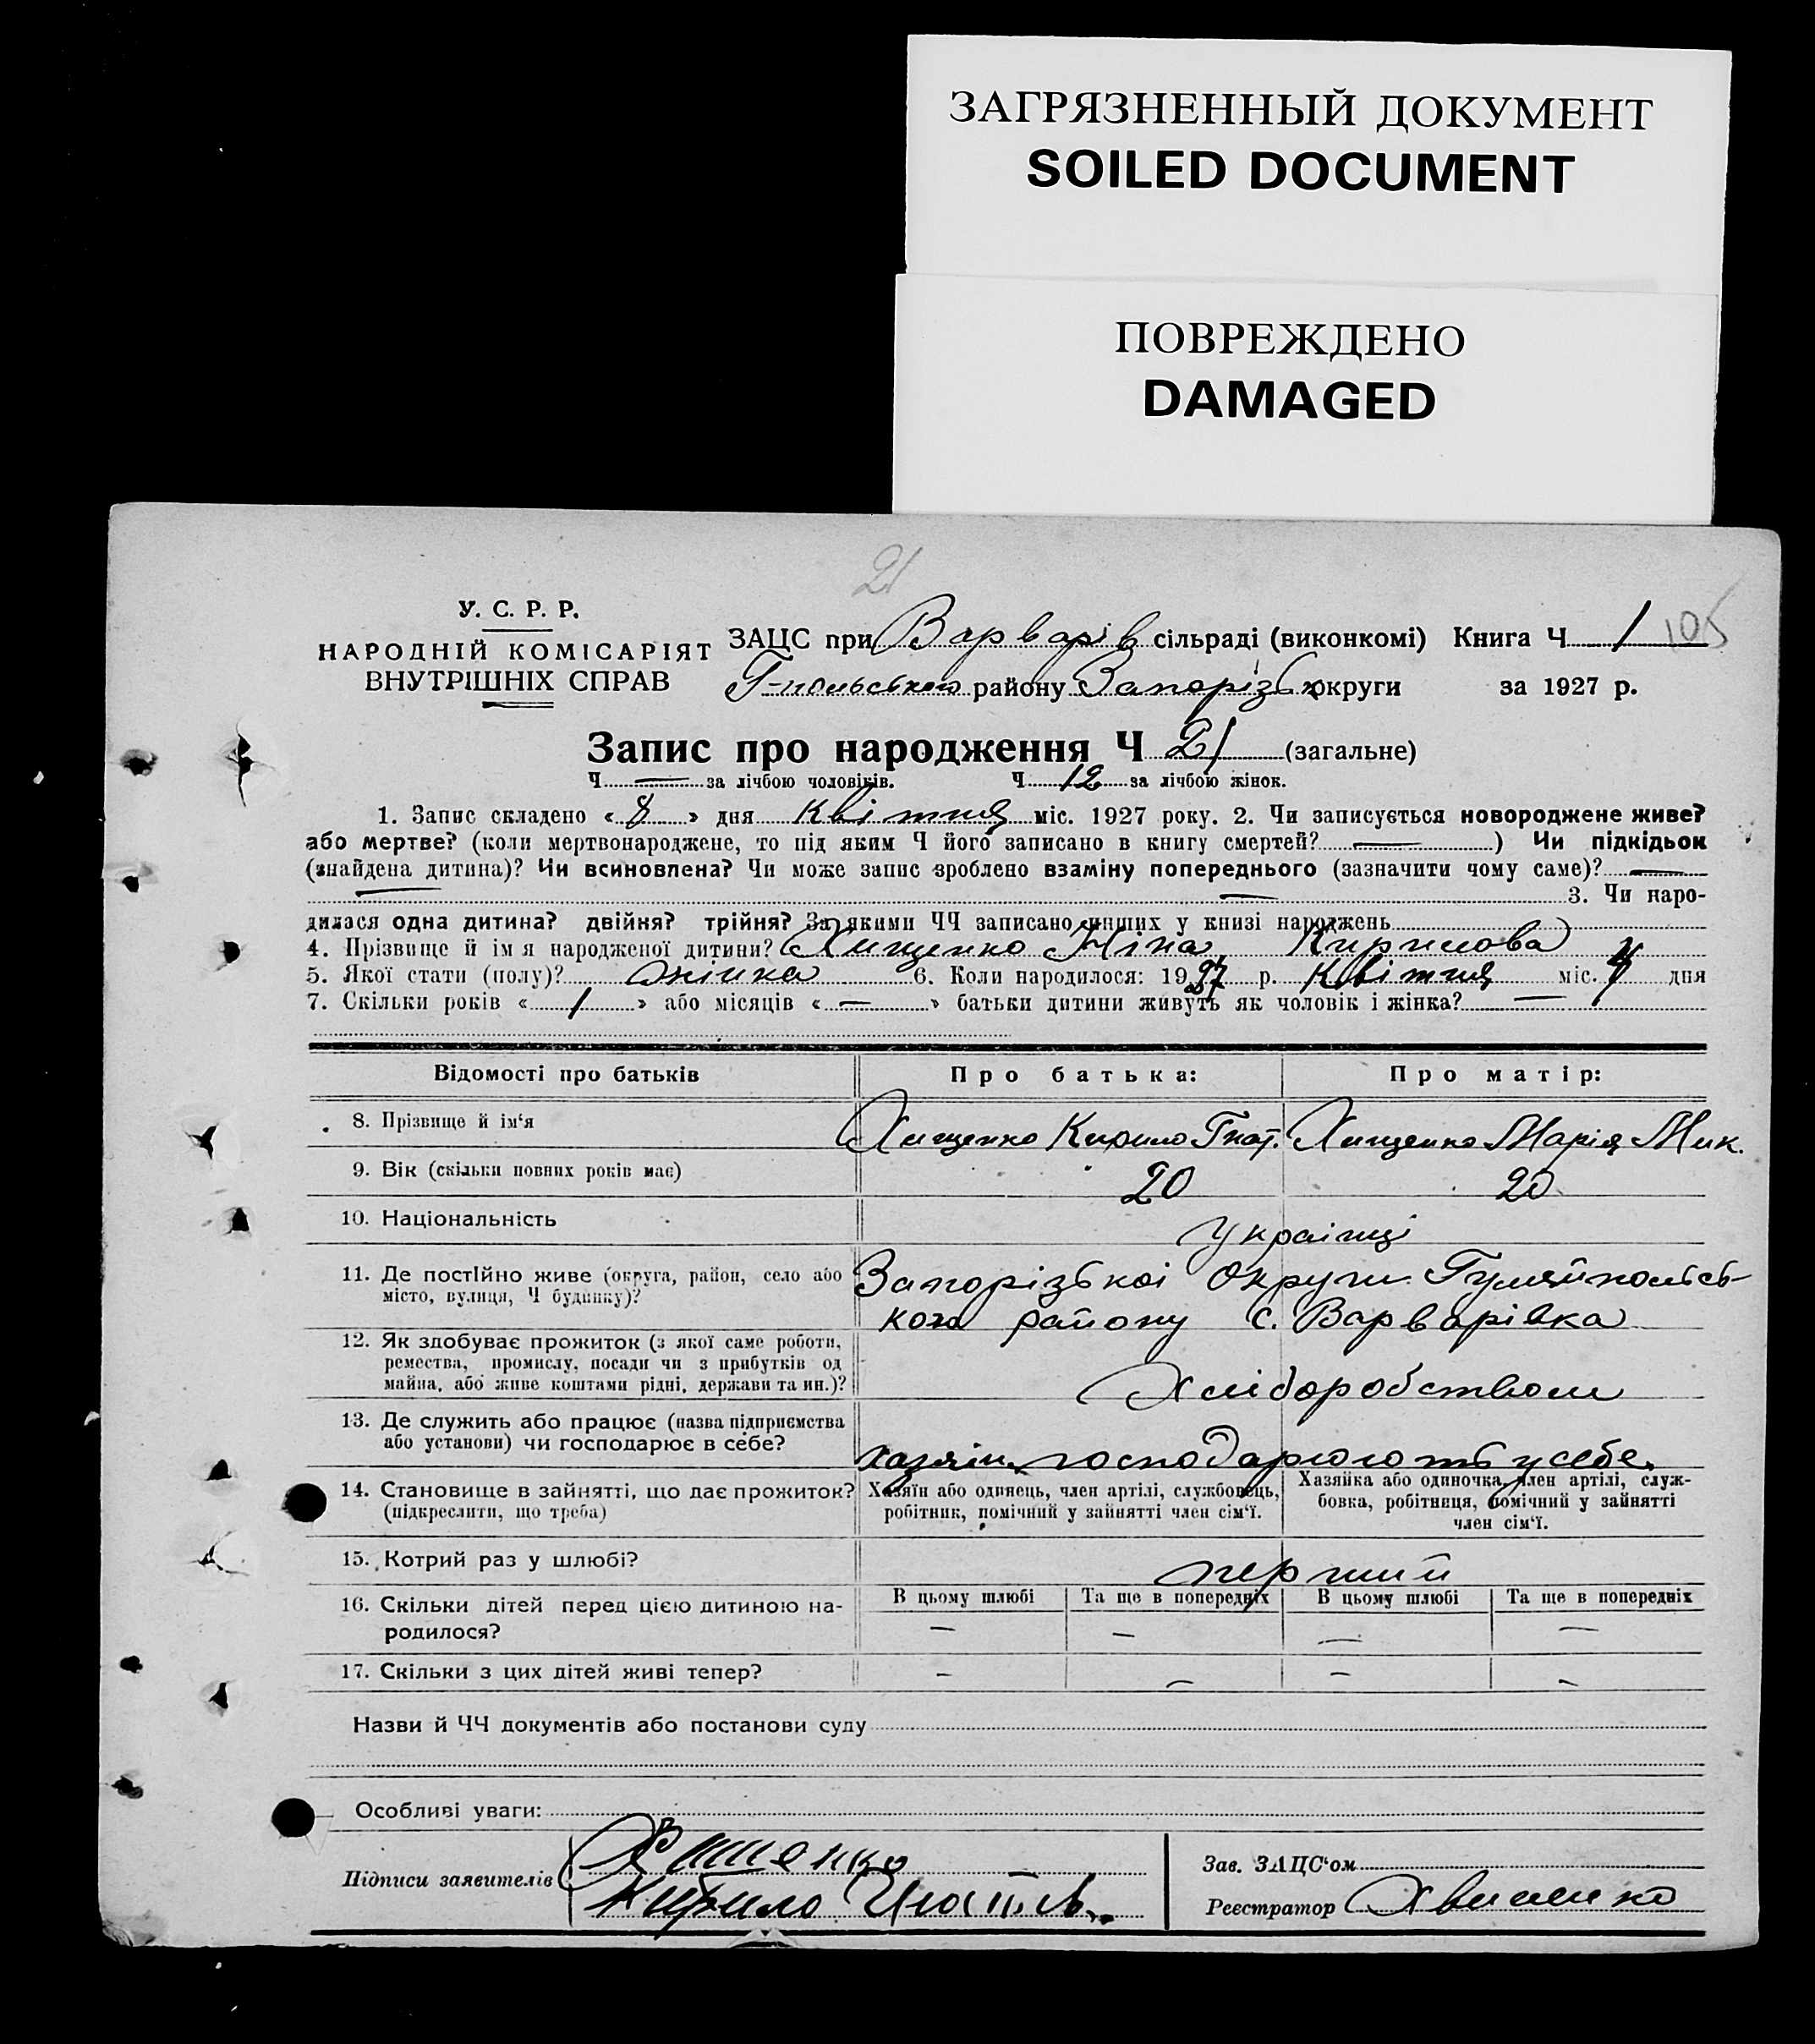 ЗАГРЯЗНЕННЫЙ ДОКУМЕНТ
SOILED DOCUMENT
ПОВРЕЖДЕНО
DAMAGED
21
105
У. С. Р. Р.
НАРОДНІЙ КОМІСАРІЯТ
ВНУТРІШНІХ СПРАВ
ЗАЦС при Варварів сільраді (виконкомі) Книга Ч 1
Г-польського району Запорізьк округи за 1927 р.
Запис про народження Ч 21 (загальне)
Ч — за лічбою чоловіків. Ч 12 за лічбою жінок.
1. Запис складено « 8 » дня квітня міс. 1927 року. 2. Чи записується новороджене живе?
або мертве? (коли мертвонароджене, то під яким Ч його записано в книгу смертей? — ) Чи підкідьок
(знайдена дитина)? Чи всиновлена? Чи може запис зроблено взаміну попереднього (зазначити чому саме)? —
— — 3. Чи наро-
дилася одна дитина? двійня? трійня? За якими ЧЧ записано инших у книзі народжень
4. Прізвище й ім я народженої дитини? Хищенко Ніна Кирилова
5. Якої стати (полу)? жінка 6. Коли народилося: 1927 р. квітня міс. 4 дня
7. Скільки років « 1 » або місяців « — » батьки дитини живуть як чоловік і жінка? —
Відомості про батьків Про батька: Про матір:
8. Прізвище й ім‘я Хищенко Кирило Гнат. Хищенко Марія Мик.
9. Вік (скільки повних років має) 20 20
10. Національність Українці
11. Де постійно живе (округа, район, село або
місто, вулиця, Ч будинку)?
Запорізької округи Гуляйпольсь-
кого району с. Варварівка
12. Як здобуває прожиток (з якої саме роботи,
ремества, промислу, посади чи з прибутків од
майна, або живе коштами рідні, держави та ин.)?
Хліборобством
13. Де служить або працює (назва підприємства
або установи) чи господарює в себе?
хазяїн. господарюють у себе.
14. Становище в зайнятті, що дає прожиток?
(підкреслити, що треба)
Хазяїн або одинець, член артілі, службовець,
робітник, помічний у зайнятті член сім‘ї.
Хазяйка або одиночка, член артілі, служ-
бовка, робітниця, помічний у зайнятті
член сім‘ї.
15. Котрий раз у шлюбі? перший
16. Скільки дітей перед цією дитиною на-
родилося?
В цьому шлюбі Та ще в попередніх В цьому шлюбі Та ще в попередніх
— — — —
17. Скільки з цих дітей живі тепер? — — — —
Назви й ЧЧ документів або постанови суду
Особливі уваги:
Підписи заявителів
Кирило
Зав. ЗАЦС‘ом
Реєстратор